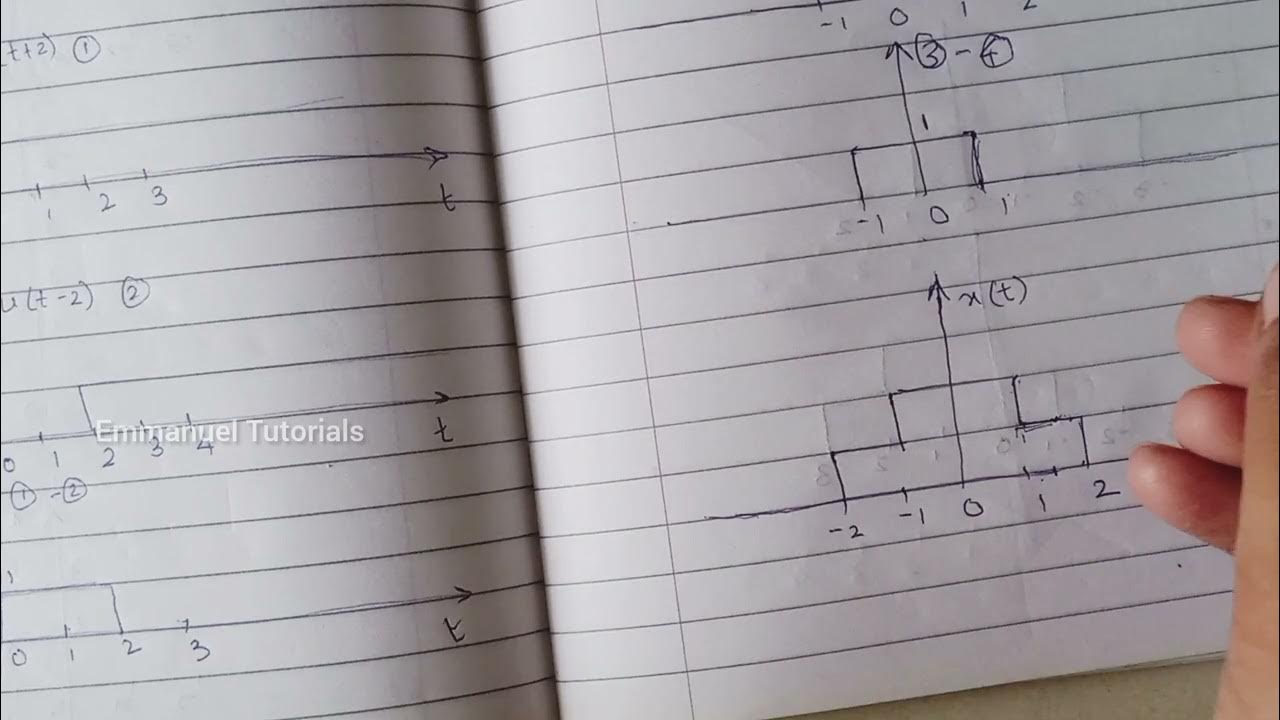 t+2) ①
1 2 3
t
u(t-2) ②
0 1 2 3 4
t
Emmanuel Tutorials
① - ②
1
0 1 2 3
t
-1 0 1 2
③ - ④
1
-1 0 1
x(t)
-2 -1 0 1 2